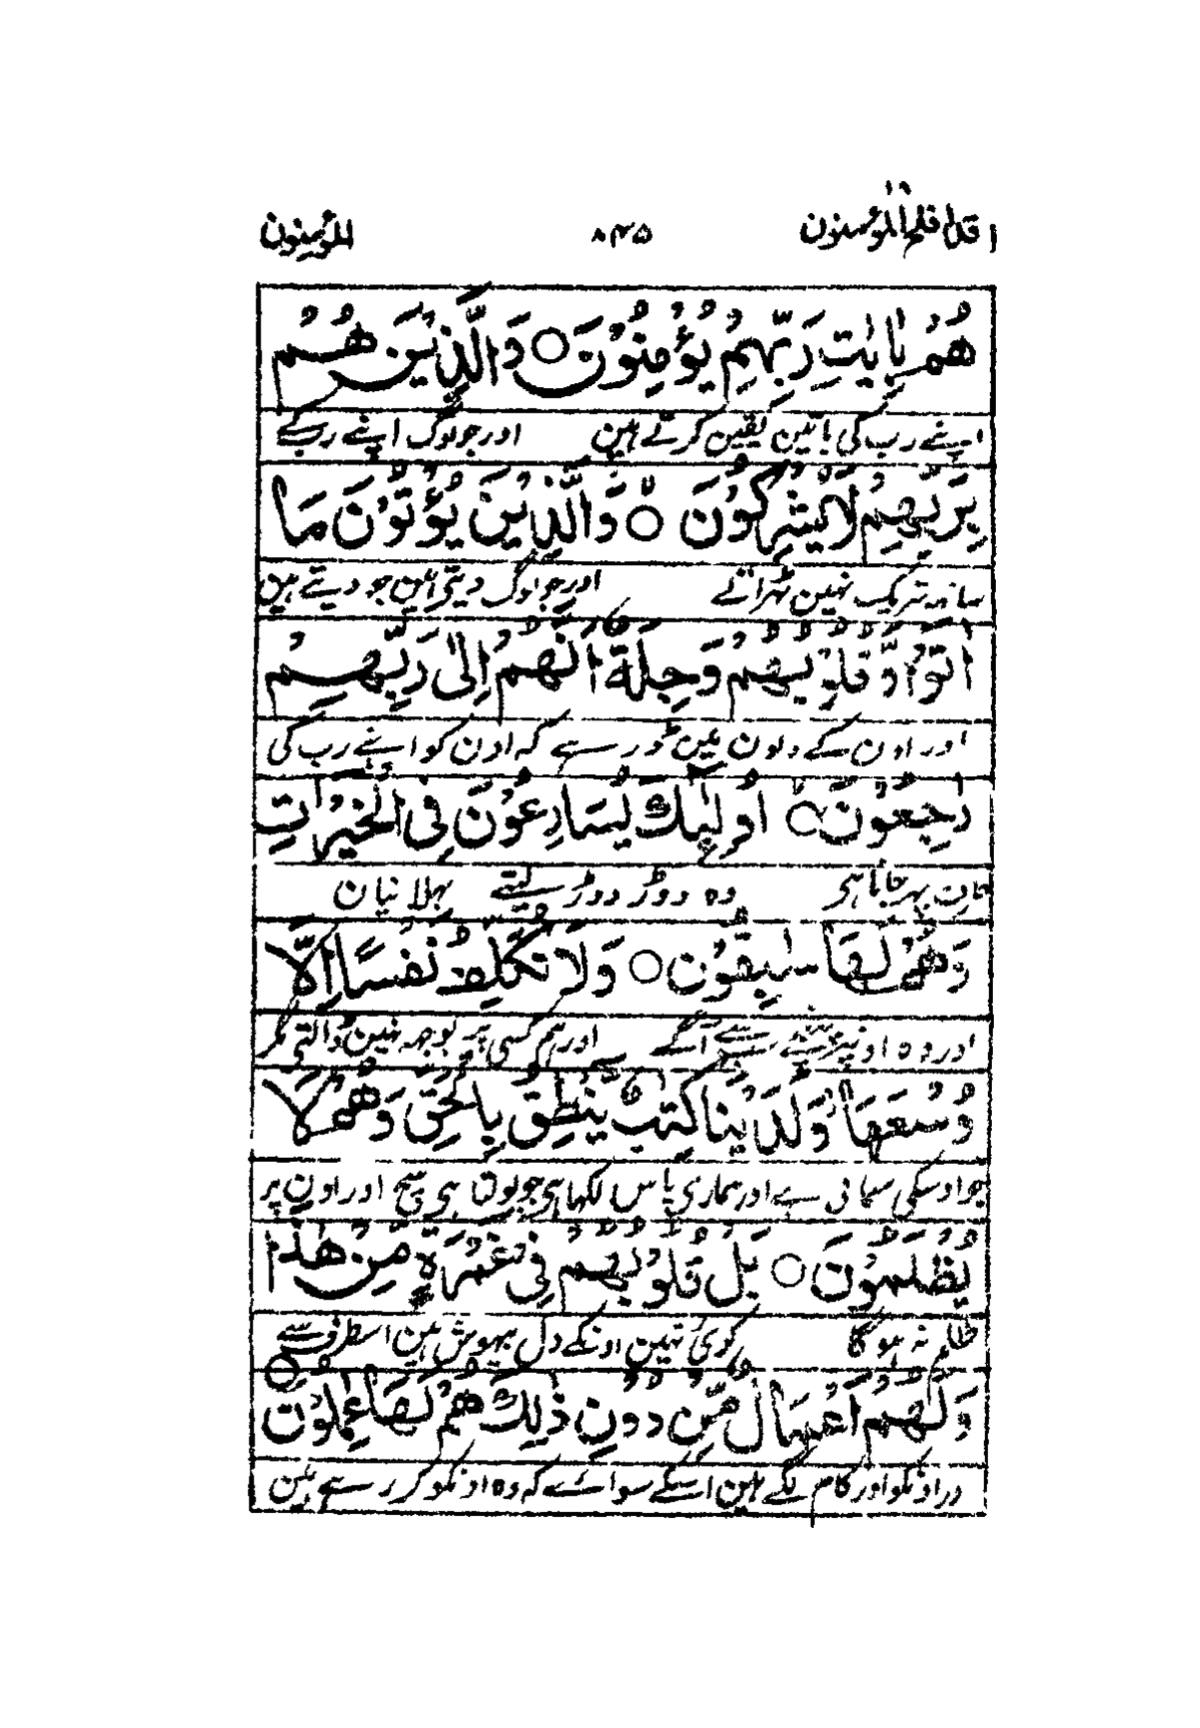 قد افلح المؤمنون ۱۸ ۸۴۵ المؤمنون
هُمْ بِاٰیٰتِ رَبِّهِمْ یُؤْمِنُوْنَ ○ وَالَّذِیْنَ هُمْ
اپنے رب کی باتین یقین کرتے ہین اور جو لوگ اپنے رب کے
بِرَبِّهِمْ لَا یُشْرِكُوْنَ ○ وَالَّذِیْنَ یُؤْتُوْنَ مَا
ساتھ شریک نہین ٹھراتے اور جو لوگ دیتے ہین جو دیتے ہین
اٰتَوْا وَّ قُلُوْبُهُمْ وَجِلَةٌ اَنَّهُمْ اِلٰى رَبِّهِمْ
اور اون کے دلون مین ڈر ہے کہ اون کو اپنے رب کی
رٰجِعُوْنَ ○ اُولٰٓئِكَ یُسَارِعُوْنَ فِی الْخَیْرَاتِ
پھر جانا ہی وہ دوڑ دوڑ لیتے بھلائیان
وَهُمْ لَهَا سٰبِقُوْنَ ○ وَلَا نُكَلِّفُ نَفْسًا اِلَّا
اور وہ اونپر سے آگے اور ہم کسی پر بوجھ نہین ڈالتے مگر
وُسْعَهَا وَلَدَیْنَا كِتٰبٌ یَّنْطِقُ بِالْحَقِّ وَهُمْ لَا
جو اوسکی سمائی ہے اور ہماری پاس لکھا ہی جو بولتا ہی سچ اور اون پر
یُظْلَمُوْنَ ○ بَلْ قُلُوْبُهُمْ فِیْ غَمْرَةٍ مِّنْ هٰذَا
ظلم نہ ہوگا کوئی نہین اونکے دل بیہوش ہین اسطرف سے
وَلَهُمْ اَعْمَالٌ مِّنْ دُوْنِ ذٰلِكَ هُمْ لَهَا عٰمِلُوْنَ ○
اور اونکو اور کام لگے ہین اسکے سواے کہ وہ اونکو کر رہے ہین